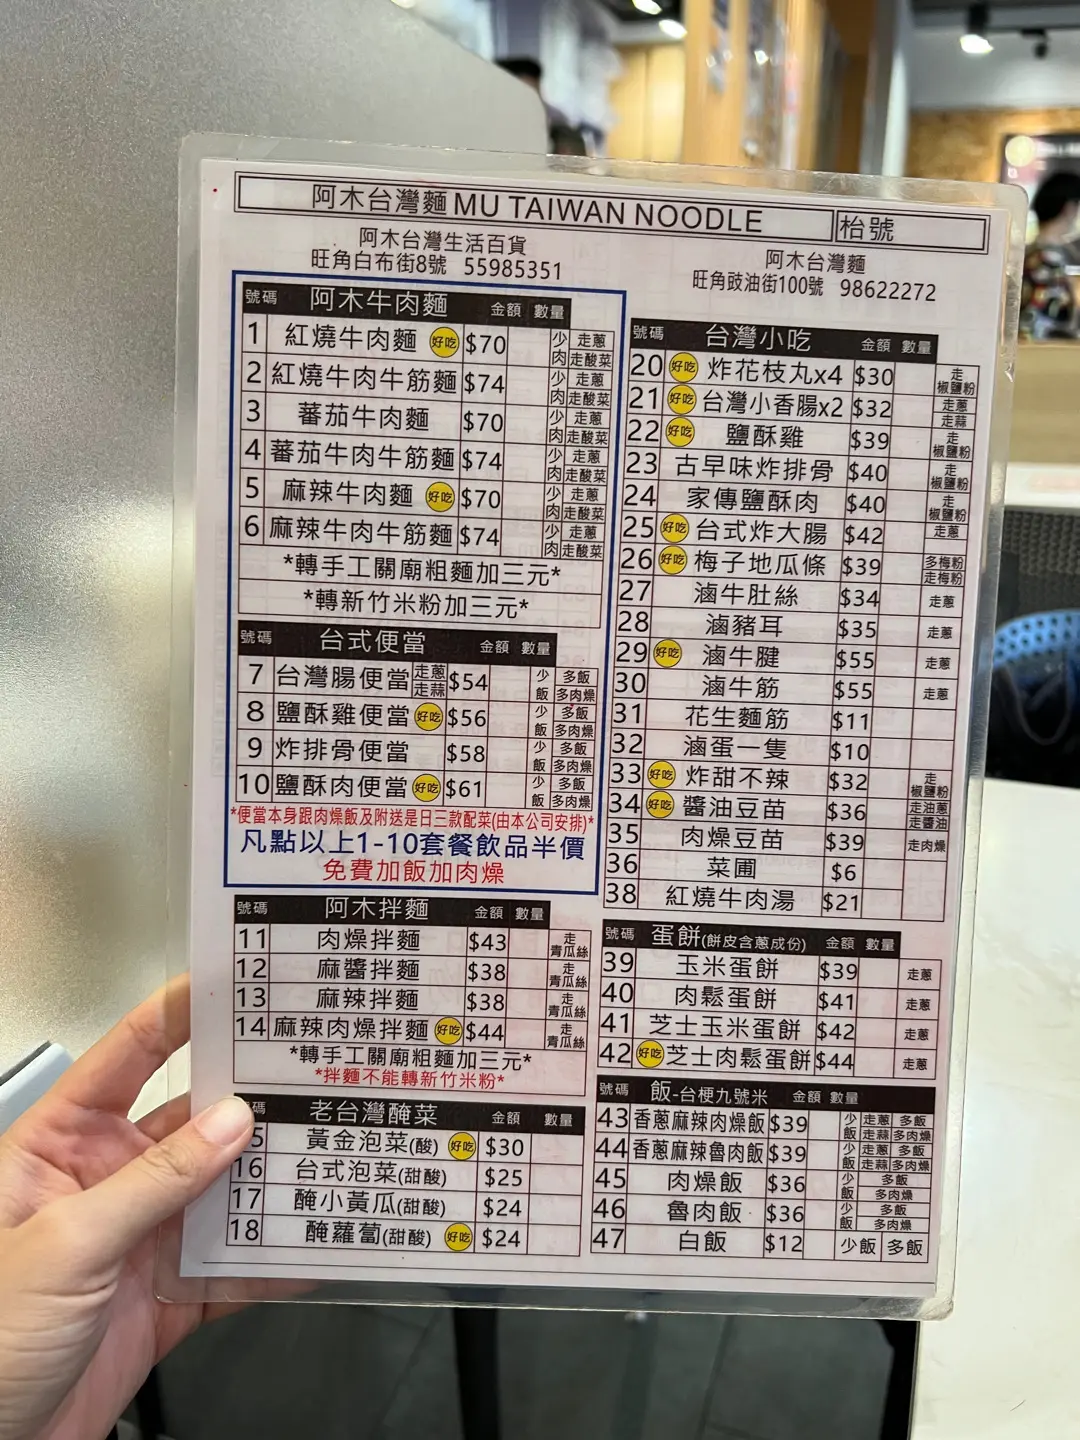 阿木台灣麵 MU TAIWAN NOODLE 枱號
阿木台灣生活百貨
旺角白布街8號 55985351
阿木台灣麵
旺角豉油街100號 98622272
號碼 阿木牛肉麵 金額 數量
1 紅燒牛肉麵 好吃 $70 少肉 走蔥 走酸菜
2 紅燒牛肉牛筋麵 $74 少肉 走蔥 走酸菜
3 蕃茄牛肉麵 $70 少肉 走蔥 走酸菜
4 蕃茄牛肉牛筋麵 $74 少肉 走蔥 走酸菜
5 麻辣牛肉麵 好吃 $70 少肉 走蔥 走酸菜
6 麻辣牛肉牛筋麵 $74 少肉 走蔥 走酸菜
*轉手工關廟粗麵加三元*
*轉新竹米粉加三元*
號碼 台式便當 金額 數量
7 台灣腸便當 走蔥 走蒜 $54 少飯 多飯 多肉燥
8 鹽酥雞便當 好吃 $56 少飯 多飯 多肉燥
9 炸排骨便當 $58 少飯 多飯 多肉燥
10 鹽酥肉便當 好吃 $61 少飯 多飯 多肉燥
*便當本身跟肉燥飯及附送是日三款配菜(由本公司安排)*
凡點以上1-10套餐飲品半價
免費加飯加肉燥
號碼 阿木拌麵 金額 數量
11 肉燥拌麵 $43 走青瓜絲
12 麻醬拌麵 $38 走青瓜絲
13 麻辣拌麵 $38 走青瓜絲
14 麻辣肉燥拌麵 好吃 $44 走青瓜絲
*轉手工關廟粗麵加三元*
*拌麵不能轉新竹米粉*
碼 老台灣醃菜 金額 數量
5 黃金泡菜(酸) 好吃 $30
16 台式泡菜(甜酸) $25
17 醃小黃瓜(甜酸) $24
18 醃蘿蔔(甜酸) 好吃 $24
號碼 台灣小吃 金額 數量
20 好吃 炸花枝丸x4 $30 走椒鹽粉
21 好吃 台灣小香腸x2 $32 走蔥 走蒜
22 好吃 鹽酥雞 $39 走椒鹽粉
23 古早味炸排骨 $40 走椒鹽粉
24 家傳鹽酥肉 $40 走椒鹽粉
25 好吃 台式炸大腸 $42 走蔥
26 好吃 梅子地瓜條 $39 多梅粉 走梅粉
27 滷牛肚絲 $34 走蔥
28 滷豬耳 $35 走蔥
29 好吃 滷牛腱 $55 走蔥
30 滷牛筋 $55 走蔥
31 花生麵筋 $11
32 滷蛋一隻 $10
33 好吃 炸甜不辣 $32 走椒鹽粉
34 好吃 醬油豆苗 $36 走油蔥 走醬油
35 肉燥豆苗 $39 走肉燥
36 菜圃 $6
38 紅燒牛肉湯 $21
號碼 蛋餅(餅皮含蔥成份) 金額 數量
39 玉米蛋餅 $39 走蔥
40 肉鬆蛋餅 $41 走蔥
41 芝士玉米蛋餅 $42 走蔥
42 好吃 芝士肉鬆蛋餅 $44 走蔥
號碼 飯-台梗九號米 金額 數量
43 香蔥麻辣肉燥飯 $39 少飯 走蔥 多飯 走蒜 多肉燥
44 香蔥麻辣魯肉飯 $39 少飯 走蔥 多飯 走蒜 多肉燥
45 肉燥飯 $36 少飯 多飯 多肉燥
46 魯肉飯 $36 少飯 多飯 多肉燥
47 白飯 $12 少飯 多飯